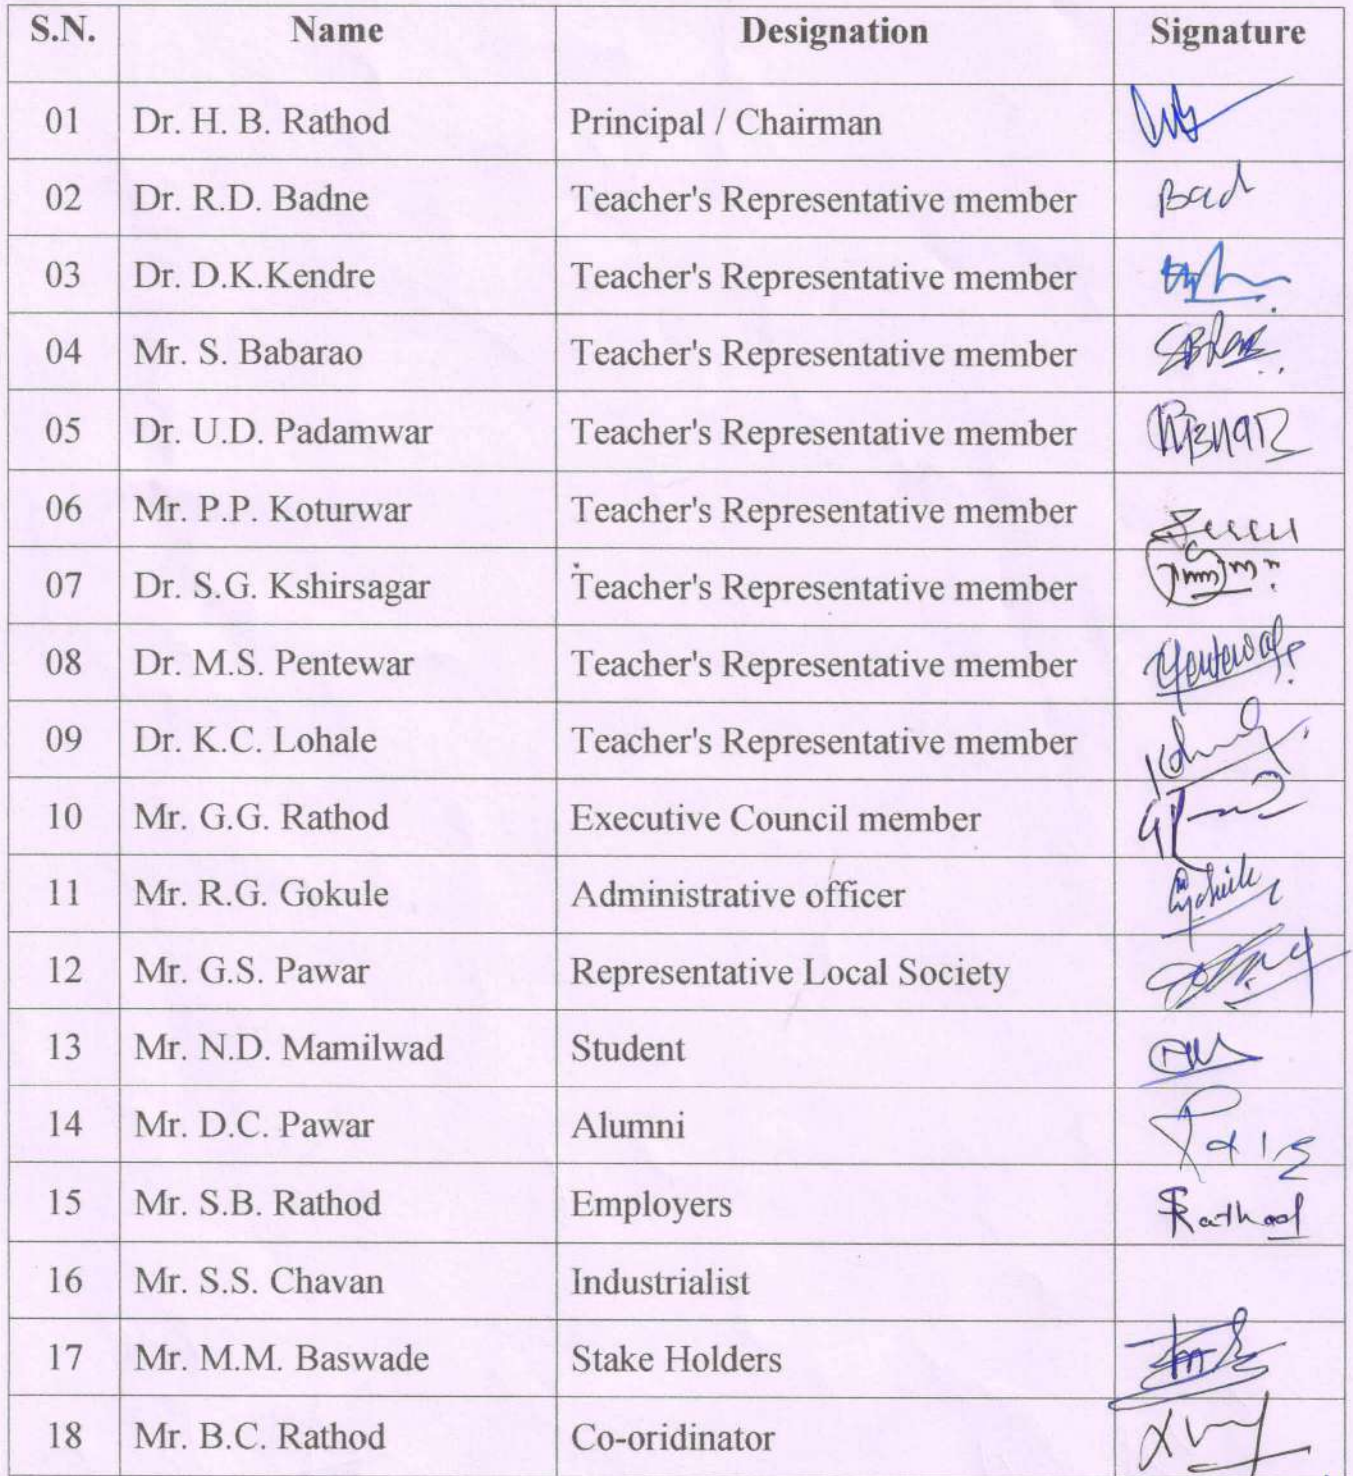 S.N. Name Designation Signature
01 Dr. H. B. Rathod Principal / Chairman
02 Dr. R.D. Badne Teacher's Representative member Bad
03 Dr. D.K.Kendre Teacher's Representative member
04 Mr. S. Babarao Teacher's Representative member
05 Dr. U.D. Padamwar Teacher's Representative member
06 Mr. P.P. Koturwar Teacher's Representative member
07 Dr. S.G. Kshirsagar Teacher's Representative member
08 Dr. M.S. Pentewar Teacher's Representative member
09 Dr. K.C. Lohale Teacher's Representative member
10 Mr. G.G. Rathod Executive Council member
11 Mr. R.G. Gokule Administrative officer
12 Mr. G.S. Pawar Representative Local Society
13 Mr. N.D. Mamilwad Student
14 Mr. D.C. Pawar Alumni
15 Mr. S.B. Rathod Employers SRathod
16 Mr. S.S. Chavan Industrialist
17 Mr. M.M. Baswade Stake Holders
18 Mr. B.C. Rathod Co-oridinator